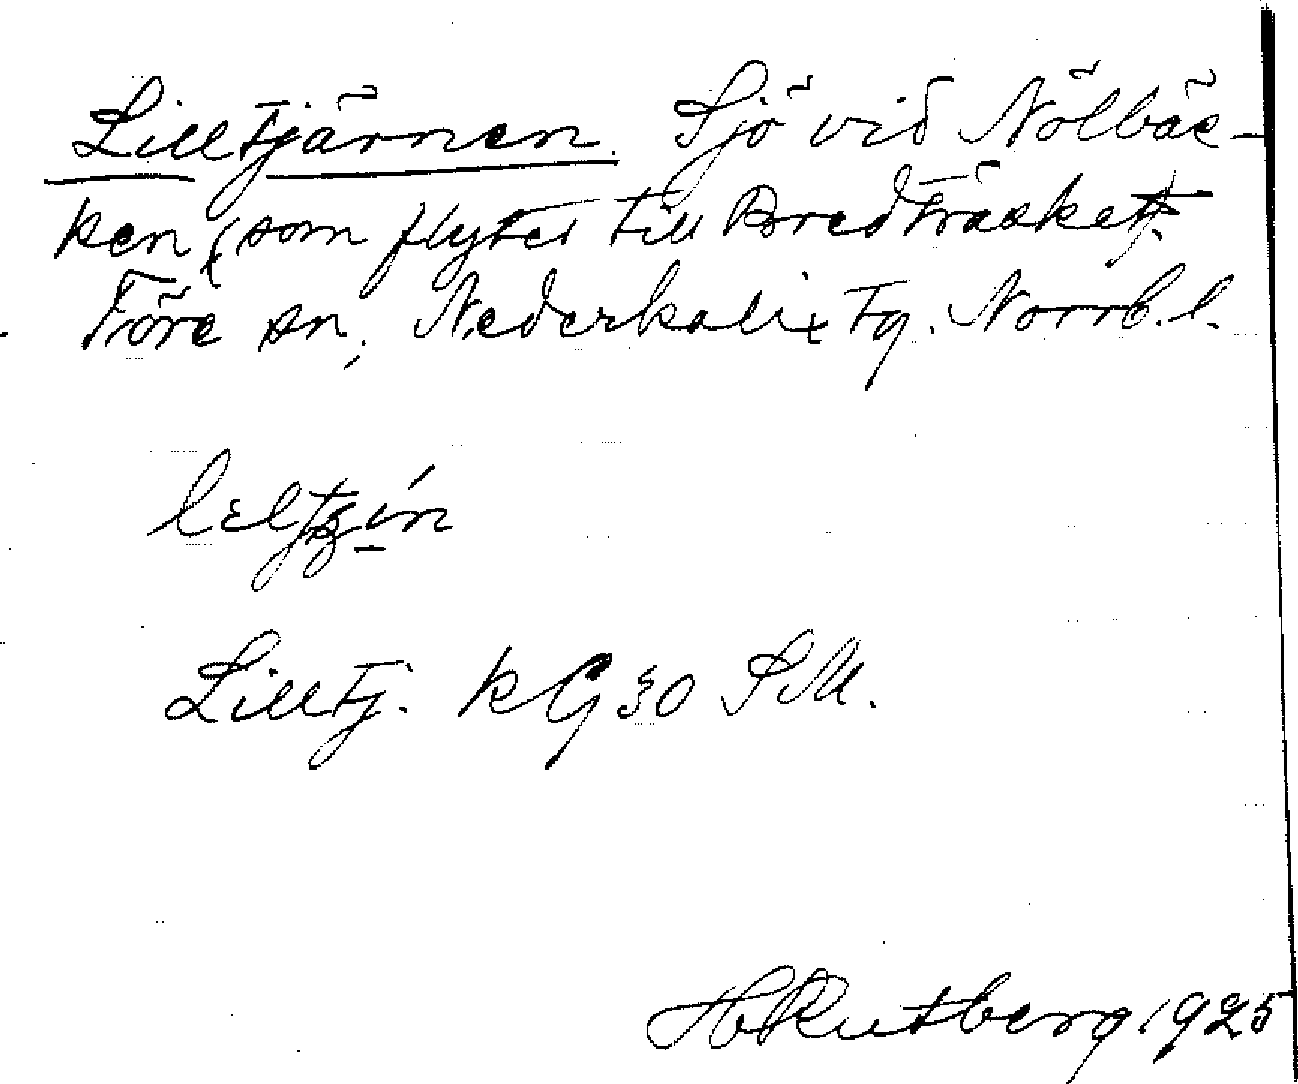 Lilltjärnen. Sjö vid Nölbäc-
ken (som flyter till Bredträsket).
Töre sn, Nederkalix tg. Norrb. l.
Lilltj. KG 30 S.M.
H Rutberg 1925